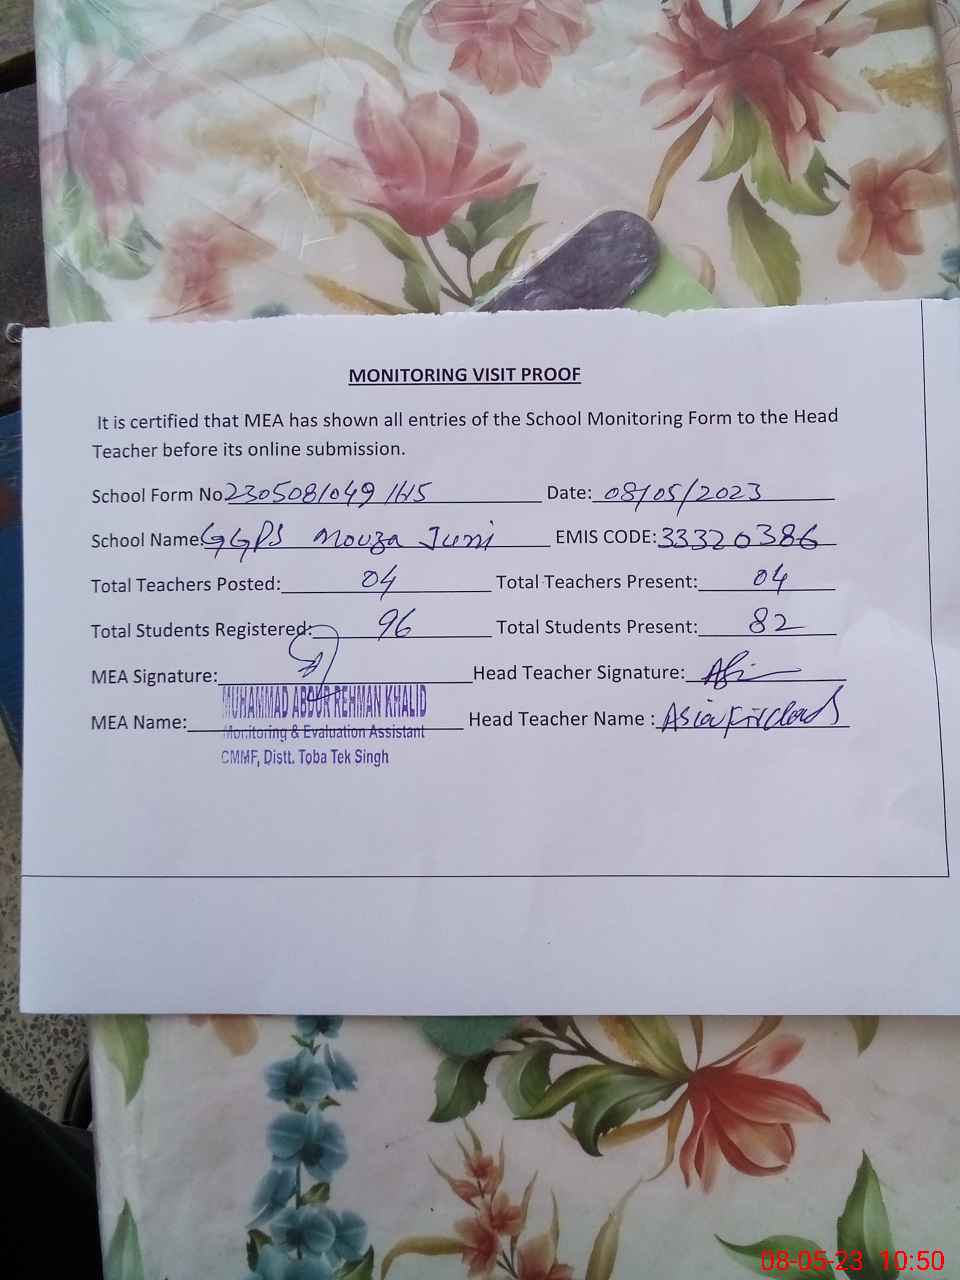 MONITORING VISIT PROOF
It is certified that MEA has shown all entries of the School Monitoring Form to the Head
Teacher before its online submission.
School Form No 2305081049 Date: 08/05/2023
School Name: GGPS Mouza Jussi EMIS CODE: 33320386
Total Teachers Posted: 04 Total Teachers Present: 04
Total Students Registered: 96 Total Students Present: 82
MEA Signature: Head Teacher Signature:
MUHAMMAD ABDUR REHMAN KHALID
MEA Name: Head Teacher Name : Asia
Monitoring & Evaluation Assistant
CMMF, Distt. Toba Tek Singh
08-05-23 10:50